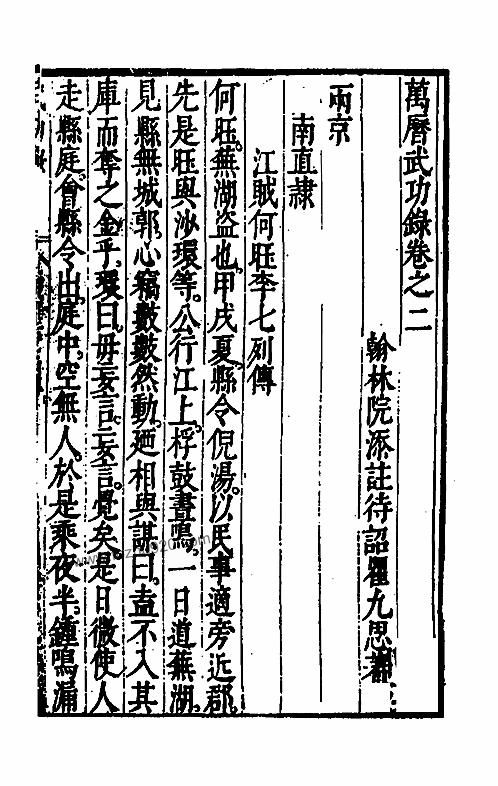 萬曆武功錄卷之二
翰林院添註待詔瞿九思著
兩京
南直隸
江賊何旺李七列傳
何旺。蕪湖盗也。甲戌夏。縣令倪湯。以民事適旁近郡。
先是旺與沙環等。公行江上。桴鼓晝鳴。一日道蕪湖。
見縣無城郭。心竊數數然動。廼相與謀曰。盍不入其
庫而奪之金乎。環曰。毋妄言。妄言。覺矣。是日微使人
走縣庭。會縣令出。庭中。空無人。於是乘夜半。鍾鳴漏